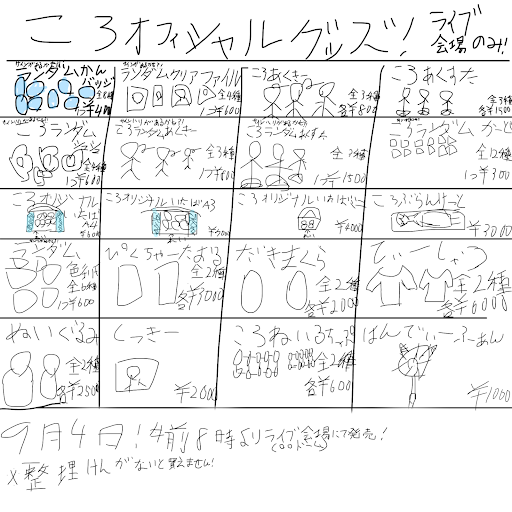 ころオフィシャルグッズ!
ライブ会場のみ!
ランダムかんバッジ
全8種
1つ¥400
ランダムクリアファイル
全4種
1つ¥600
ころあくきー
全3種
各¥800
ころあくすた
全3種
各¥1500
ころランダム
1つ¥600
ころランダムあくきー
全3種
1つ¥600
ころランダムあくすた
全3種
1つ¥1500
ころランダムカード
全12種
1つ¥300
ころオリジナル
いたばA4
ころオリジナルいたばA3
ころオリジナル
¥4000
ころぶらんけーと
¥3000
ランダム
色紙
全6種
1つ¥600
ぴくちゃーたおる
全2種
だきまくら
全2種
各¥2000
てぃーしゃつ
全2種
各¥6000
ぬいぐるみ
全2種
各¥2500
くっきー
¥2000
ころねいるちっぷ
全2種
各¥600
はんでぃーふぁん
¥1000
9月4日!午前8時よりライブ会場にて発売!
×整理けんがないと買えません!